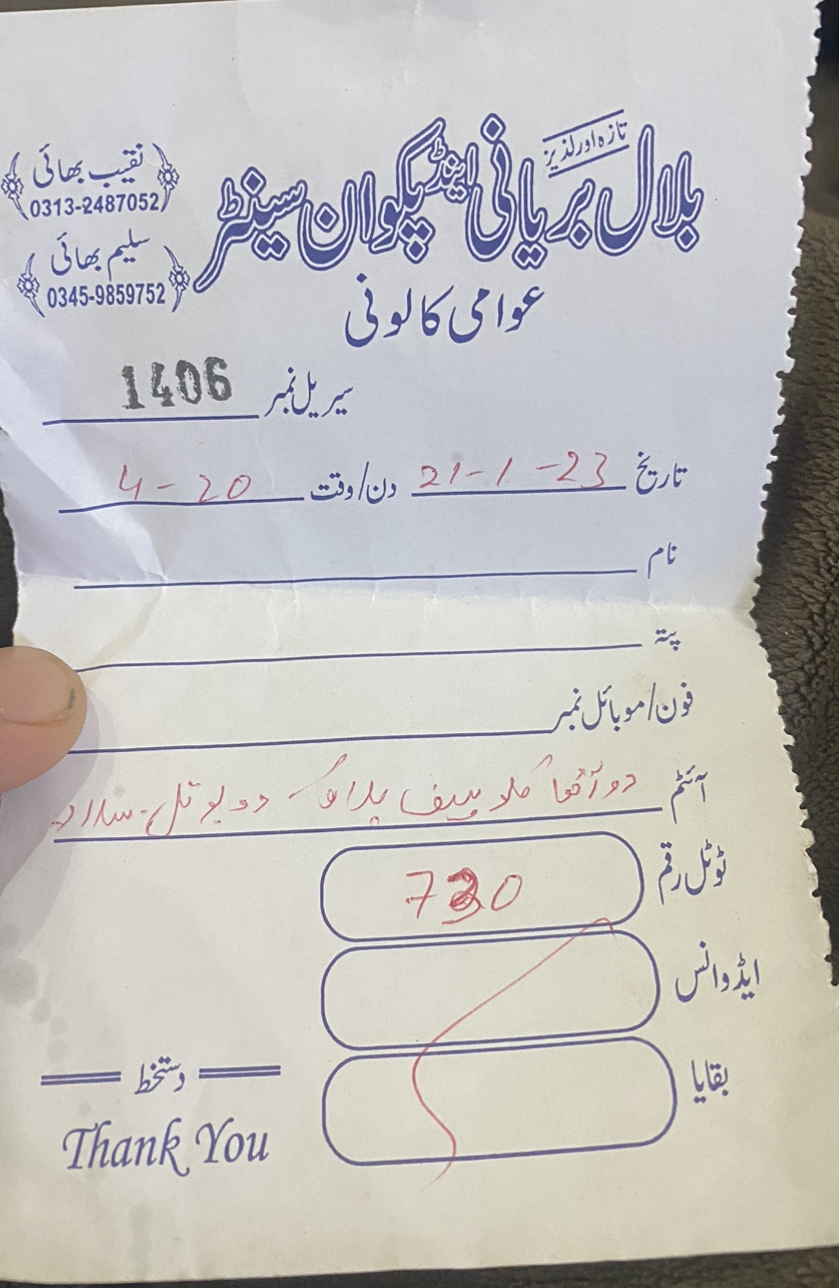 تازہ اور لذیز
بلال بریانی اینڈ پکوان سینٹر
نقیب بھائی
0313-2487052
سلیم بھائی
0345-9859752
عوامی کالونی
سیریل نمبر 1406
تاریخ 21-1-23 دن/وقت 4-20
نام
پتہ
فون/موبائل نمبر
آئٹم دو آدھا کلو بیف پلاؤ - دو بوتل - سلاد
ٹوٹل رقم
ایڈوانس
بقایا
دستخط
Thank You